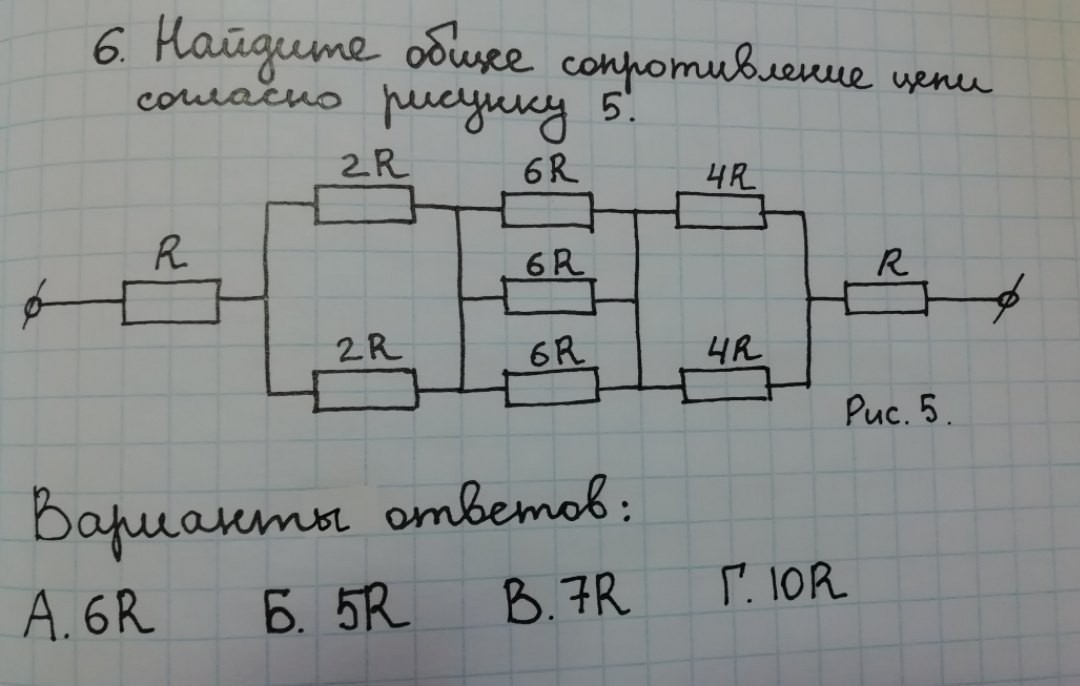 6. Найдите общее сопротивление цепи
согласно рисунку 5.
2R 6R 4R
R 6R R
2R 6R 4R
Рис. 5.
Варианты ответов:
А. 6R Б. 5R В. 7R Г. 10R